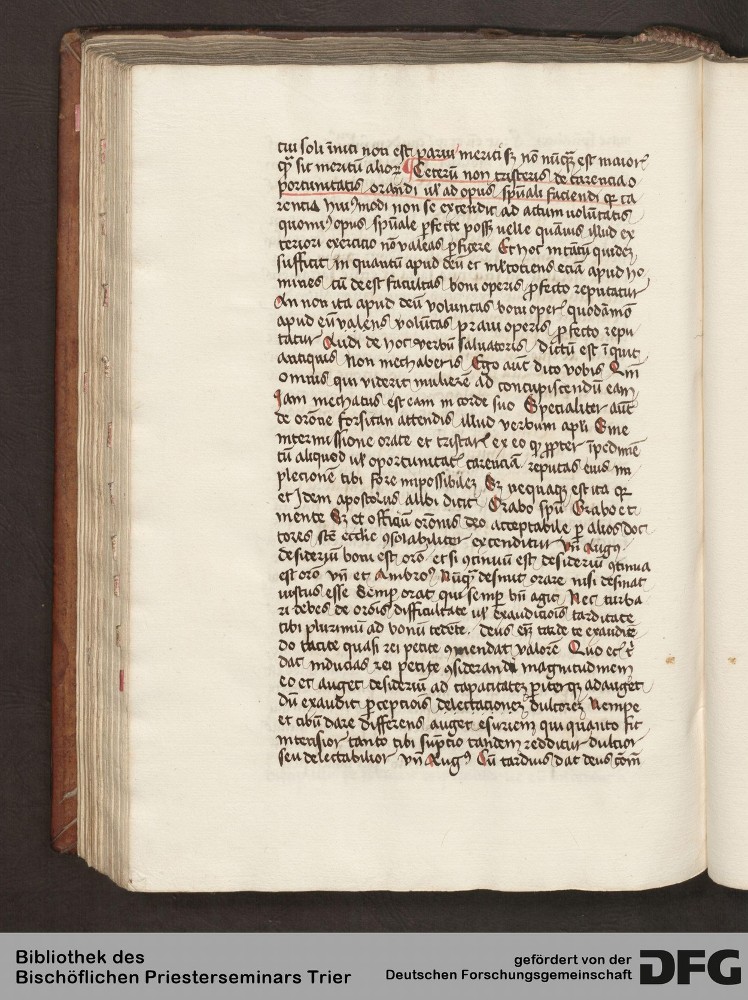 cui soli īniti non est parui meriti sꝫ nō nūqꝫ est maior
qꝫ sit meritū alioꝝ Ceterū non tristeris de carencia o
portunitatis orandi ul' ad opus spūali faciendi qꝛ ca
rentia hui'modi non se extendit ad actum volūtatis
quomi' opus spūale ꝑfecte possꝫ velle quāuis illud ex
teriori exercitio nō valeas ꝑficere Et hoc in tātū quidē
sufficit in quantū apud deū et m̄ltociens eciā apud ho
mines cū deest facultas boni operis ꝓ facto reputatur
An non ita apud deū voluntas boni oper' quodāmō
apud eū valens volūtas praui operis ꝓ facto repu
tatur Audi de hoc verbū saluatoris dictū est īquit
antiquis Non mechaberis Ego aūt dico vobis Qm̄
omnis qui viderit mulierē ad concupiscendū eam
Iam mechatus est eam in corde suo Specialiter aūt
de orōne forsitan attendis illud verbum apli Sine
intermissione orate et tristar' ex eo qꝫ ꝓpter īpedimē
tū aliquod ul' oportunitat' carenciā reputas eius im
plecionē tibi fore impossibilē Sꝫ nequaqꝫ est ita qꝛ
et Idem apostolus alibi dicit Orabo spū Orabo et
mente Sꝫ et officiū orōnis deo acceptabile ꝑ alios doc
tores scē ecclīe ꝯsolabiliter extenditur Vn̄ Aug'
desideriū boni est orō et si ꝯtinuū est desideriū ꝯtinua
est orō vn̄ et Ambro' Nūqꝫ desinit orare nisi desinat
iustus esse Semꝑ orat qui semꝑ bn̄ agit Nec turba
ri debes de orōis difficultate ul' exaudicōis tarditate
tibi plurimū ad bonū cedēte. deus em̄ tarde te exaudiē
do tacite quasi rei petite ꝯmendat valorē Quo et tʳ
dat inducias rei petite ꝯsiderandi magnitudinem
eo et auget desideriū ad capacitatē ꝑiterqꝫ adauget
Dū exaudit ꝑcepcōis delectacionē dulcorē Nempe
et cibū dare differens auget esuriem qui quanto fit
intensior tanto cibi sūptio tandem redditur dulcior
seu delectabilior vn̄ Aug' Cū tardius dat deus cōm̄
Bibliothek des
Bischöflichen Priesterseminars Trier
gefördert von der
Deutschen Forschungsgemeinschaft
DFG